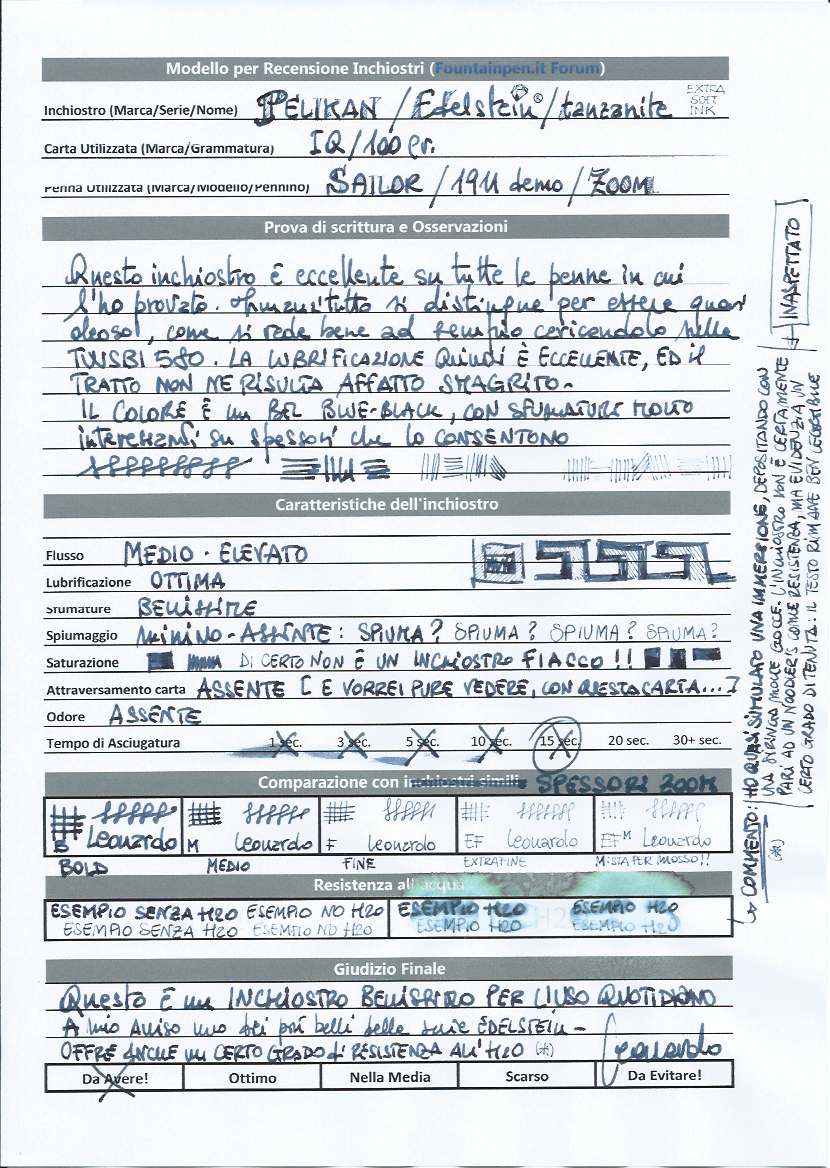 Modello per Recensione Inchiostri (Fountainpen.it Forum)
Inchiostro (Marca/Serie/Nome) PELIKAN / Edelstein® / tanzanite EXTRA SOFT INK
Carta Utilizzata (Marca/Grammatura) IQ/100 gr.
Penna Utilizzata (Marca/Modello/Pennino) SAILOR / 1911 demo / ZOOM
Prova di scrittura e Osservazioni
Questo inchiostro è eccellente su tutte le penne in cui
l'ho provato. Innanzitutto si distingue per essere quasi
oleoso, come si vede bene ad esempio caricandolo nella
TWSBI 580. LA LUBRIFICAZIONE QUINDI È ECCELLENTE, ED IL
TRATTO NON NE RISULTA AFFATTO SMAGRITO-
IL COLORE È UN BEL BLUE-BLACK, CON SFUMATURE MOLTO
interessanti su spessori che lo CONSENTONO
Caratteristiche dell'inchiostro
Flusso MEDIO - ELEVATO
Lubrificazione OTTIMA
Sfumature BELLISSIME
Spiumaggio MINIMO-ASSENTE: SPIUMA? SPIUMA? SPIUMA? SPIUMA?
Saturazione DI CERTO NON È UN INCHIOSTRO FIACCO!!
Attraversamento carta ASSENTE [E VORREI PURE VEDERE, CON QUESTA CARTA...]
Odore ASSENTE
Tempo di Asciugatura 1 sec. 3 sec. 5 sec. 10 sec. 15 sec. 20 sec. 30+ sec.
Comparazione con inchiostri simili SPESSORI ZOOM
B Leonardo M Leonardo F Leonardo EF Leonardo EF^M Leonardo
BOLD MEDIO FINE EXTRAFINE MISTA PER MOSSO!!
Resistenza all'acqua
ESEMPIO SENZA H2O ESEMPIO NO H2O ESEMPIO H2O ESEMPIO H2O
ESEMPIO SENZA H2O ESEMPIO NO H2O ESEMPIO H2O ESEMPIO H2O
Giudizio Finale
Questo È un INCHIOSTRO BELLISSIMO PER L'USO QUOTIDIANO
A mio avviso uno dei più belli della serie EDELSTEIN-
OFFRE ANCHE UN CERTO GRADO di RESISTENZA ALL'H2O (*) Leonardo
Da Avere! Ottimo Nella Media Scarso Da Evitare!
COMMENTO: HO QUASI SIMULATO UNA IMMERSIONE, DEPOSITANDO CON
(*) UNA SIRINGA MOLTE GOCCE. L'INCHIOSTRO NON È CERTAMENTE
PARI AD UN NOODLER'S COME RESISTENZA, MA EVIDENZIA UN
CERTO GRADO DI TENUTA: IL TESTO RIMANE BEN LEGGIBILE
INASPETTATO